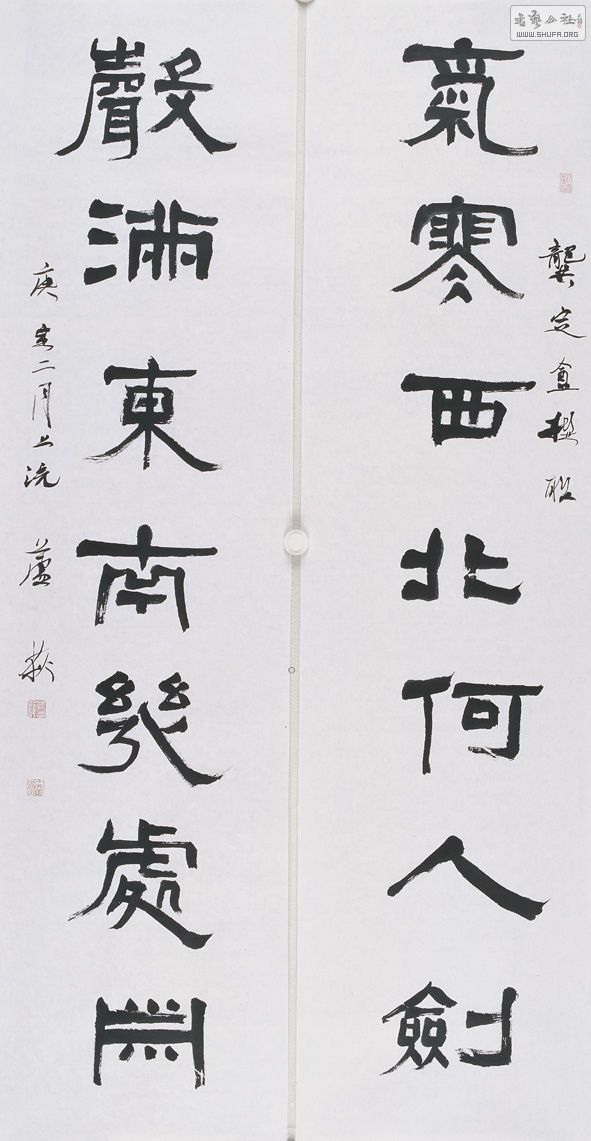 書藝公社
WWW.SHUFA.ORG
龔定盦撰聯
氣寒西北何人劍
聲滿東南幾處
庚寅二月上浣 蘆荻